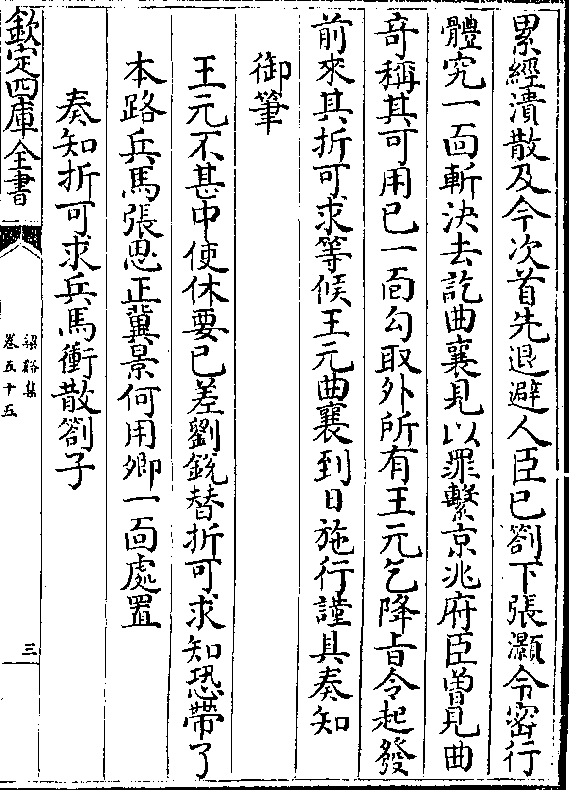 累經潰散及今次首先退避人臣已劄下張灝令密行
體究一面斬決去訖曲襄見以罪繫京兆府臣曽見曲
奇稱其可用已一面勾取外所有王元乞降㫖令起發
前來其折可求等候王元曲襄到日施行謹具奏知
御筆
王元不甚中使休要已差劉銳替折可求知恐帶了
本路兵馬張思正冀景何用卿一面處置
奏知折可求兵馬衝散劄子
欽定四庫全書
梁谿集
卷五十五
三